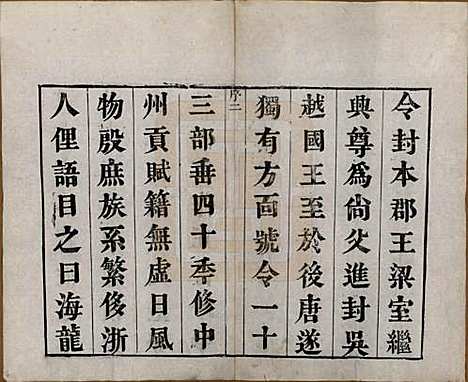 令封本郡王梁室繼
典尊爲尙父進封吳
越國王至於後唐遂
獨有方面號令一十
序二
三部垂四十季修中
州貢賦籍無虛日風
物殷庶族系繁侈浙
人俚語目之曰海龍